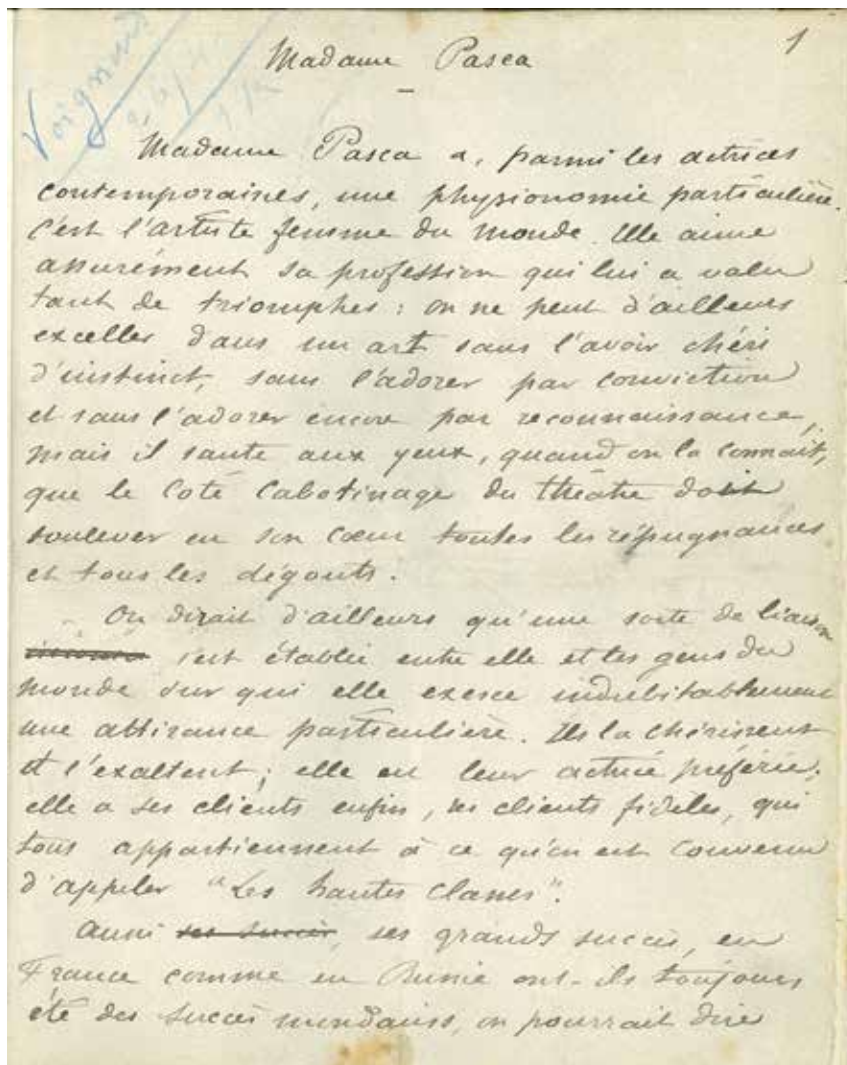 1
Madame Pasca
Madame Pasca a, parmi les actrices
contemporaines, une physionomie particulière.
C'est l'artiste femme du monde. Elle aime
assurément sa profession qui lui a valu
tant de triomphes : on ne peut d'ailleurs
exceller dans un art sans l'avoir chéri
d'instinct, sans l'adorer par conviction
et sans l'adorer encore par reconnaissance,
mais il saute aux yeux, quand on la connait,
que le coté cabotinage du théâtre doit
soulever en son cœur toutes les répugnances
et tous les dégouts.
On dirait d'ailleurs qu'une sorte de liaison
s'est établie entre elle et les gens du
monde sur qui elle exerce indubitablement
une attirance particulière. Ils la chérissent
et l'exaltent ; elle est leur actrice préférée ;
elle a ses clients enfin, ses clients fidèles, qui
tous appartiennent à ce qu'on est convenu
d'appeler "Les hautes classes".
Aussi ses succès, ses grands succès, en
France comme en Russie ont-ils toujours
été des succès mondains, on pourrait dire